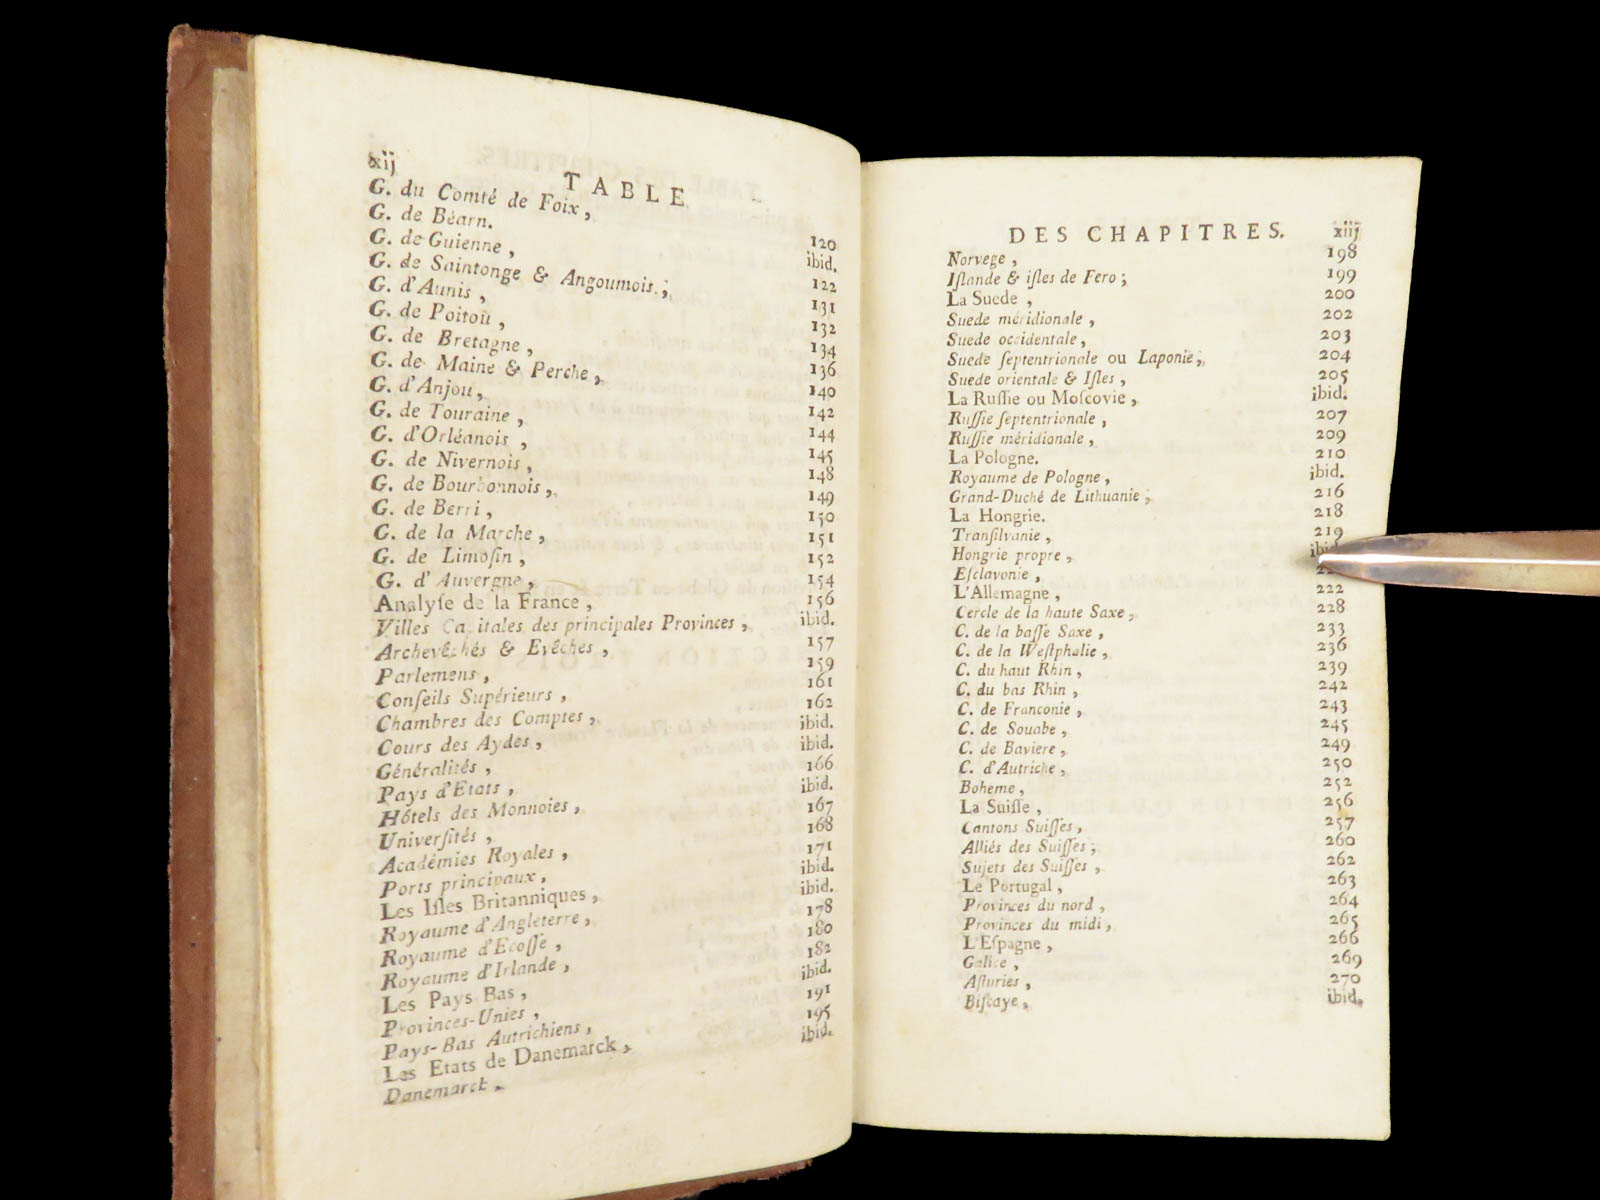 xij TABLE
G. du Comté de Foix, 120
G. de Béarn. ibid.
G. de Guienne, 122
G. de Saintonge & Angoumois, 131
G. d'Aunis, 132
G. de Poitou, 134
G. de Bretagne, 136
G. de Maine & Perche, 140
G. d'Anjou, 142
G. de Touraine, 144
G. d'Orléanois, 145
G. de Nivernois, 148
G. de Bourbonnois, 149
G. de Berri, 150
G. de la Marche, 151
G. de Limoſin, 152
G. d'Auvergne, 154
Analyſe de la France, 156
Villes Capitales des principales Provinces, ibid.
Archevêchés & Evêches, 157
Parlemens, 159
Conſeils Supérieurs, 161
Chambres des Comptes, 162
Cours des Aydes, ibid.
Généralités, ibid.
Pays d'Etats, 166
Hôtels des Monnoies, ibid.
Univerſités, 167
Académies Royales, 168
Ports principaux, 171
Les Iſles Britanniques, ibid.
Royaume d'Angleterre, ibid.
Royaume d'Ecoſſe, 178
Royaume d'Irlande, 180
Les Pays Bas, 182
Provinces-Unies, ibid.
Pays-Bas Autrichiens, 191
Les Etats de Danemarck, 195
Danemarck, ibid.
DES CHAPITRES. xiij
Norvege, 198
Iſlande & iſles de Fero; 199
La Suede, 200
Suede méridionale, 202
Suede occidentale, 203
Suede ſeptentrionale ou Laponie, 204
Suede orientale & Iſles, 205
La Ruſſie ou Moſcovie, ibid.
Ruſſie ſeptentrionale, 207
Ruſſie méridionale, 209
La Pologne. 210
Royaume de Pologne, ibid.
Grand-Duché de Lithuanie; 216
La Hongrie. 218
Tranſilvanie, 219
Hongrie propre, ibid.
Eſclavonie,
L'Allemagne, 222
Cercle de la haute Saxe, 228
C. de la baſſe Saxe, 233
C. de la Weſtphalie, 236
C. du haut Rhin, 239
C. du bas Rhin, 242
C. de Franconie, 243
C. de Souabe, 245
C. de Baviere, 249
C. d'Autriche, 250
Boheme, 252
La Suiſſe, 256
Cantons Suiſſes, 257
Alliés des Suiſſes; 260
Sujets des Suiſſes, 262
Le Portugal, 263
Provinces du nord, 264
Provinces du midi, 265
L'Eſpagne, 266
Galice, 269
Aſturies, 270
Biſcaye, ibid.